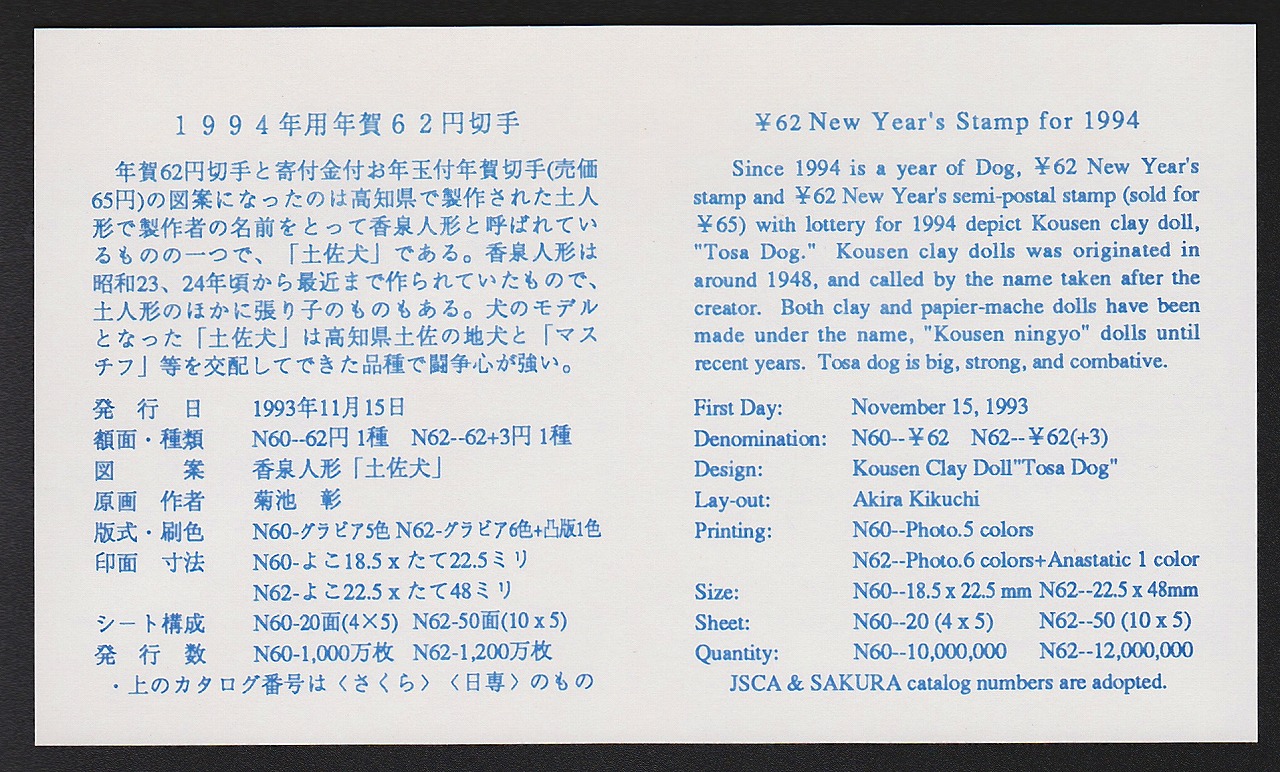 1994年用年賀62円切手
年賀62円切手と寄付金付お年玉付年賀切手(売価
65円)の図案になったのは高知県で製作された土人
形で製作者の名前をとって香泉人形と呼ばれてい
るものの一つで、「土佐犬」である。香泉人形は
昭和23、24年頃から最近まで作られていたもので、
土人形のほかに張り子のものもある。犬のモデル
となった「土佐犬」は高知県土佐の地犬と「マス
チフ」等を交配してできた品種で闘争心が強い。
発行日 1993年11月15日
額面・種類 N60--62円 1種 N62--62+3円 1種
図案 香泉人形「土佐犬」
原画 作者 菊池 彰
版式・刷色 N60-グラビア5色 N62-グラビア6色+凸版1色
印面 寸法 N60-よこ18.5 x たて22.5ミリ
N62-よこ22.5 x たて48ミリ
シート構成 N60-20面(4×5) N62-50面(10 x 5)
発行数 N60-1,000万枚 N62-1,200万枚
・上のカタログ番号は〈さくら〉〈日専〉のもの
¥62 New Year's Stamp for 1994
Since 1994 is a year of Dog, ¥62 New Year's
stamp and ¥62 New Year's semi-postal stamp (sold for
¥65) with lottery for 1994 depict Kousen clay doll,
"Tosa Dog." Kousen clay dolls was originated in
around 1948, and called by the name taken after the
creator. Both clay and papier-mache dolls have been
made under the name, "Kousen ningyo" dolls until
recent years. Tosa dog is big, strong, and combative.
First Day: November 15, 1993
Denomination: N60--¥62 N62--¥62(+3)
Design: Kousen Clay Doll"Tosa Dog"
Lay-out: Akira Kikuchi
Printing: N60--Photo.5 colors
N62--Photo.6 colors+Anastatic 1 color
Size: N60--18.5 x 22.5 mm N62--22.5 x 48mm
Sheet: N60--20 (4 x 5) N62--50 (10 x 5)
Quantity: N60--10,000,000 N62--12,000,000
JSCA & SAKURA catalog numbers are adopted.